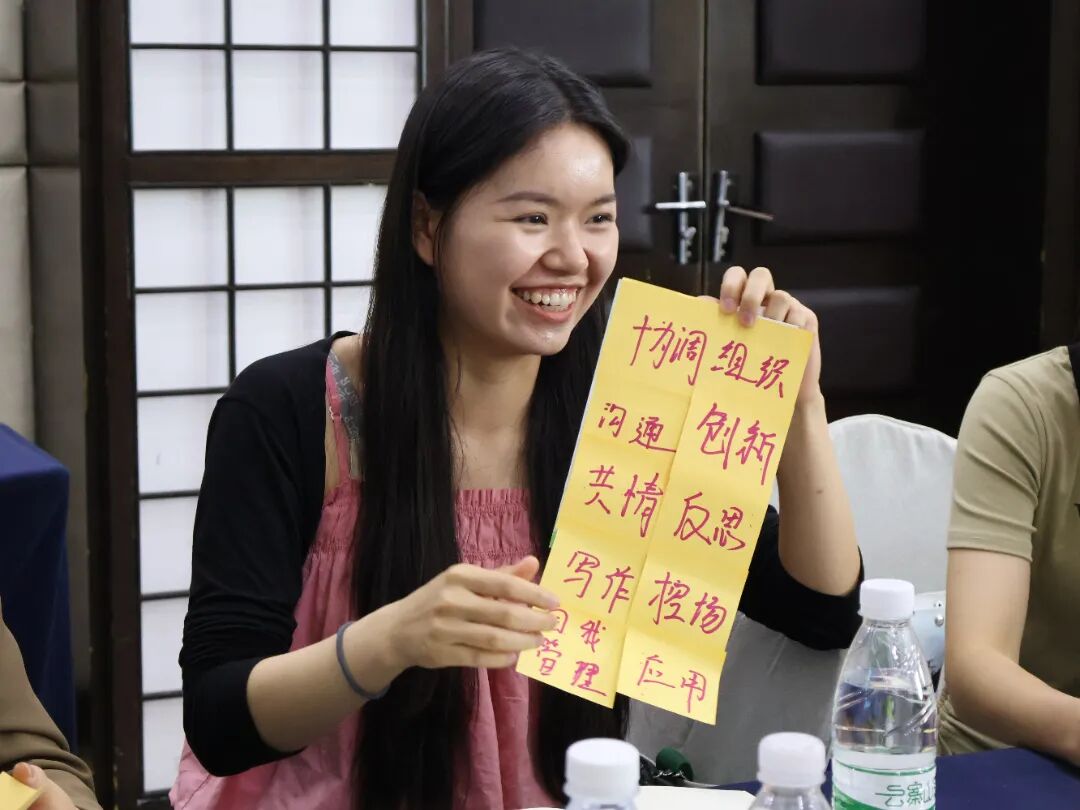 协调 组织
沟通 创新
共情 反思
写作 控场
自我
管理 应用
云寨山